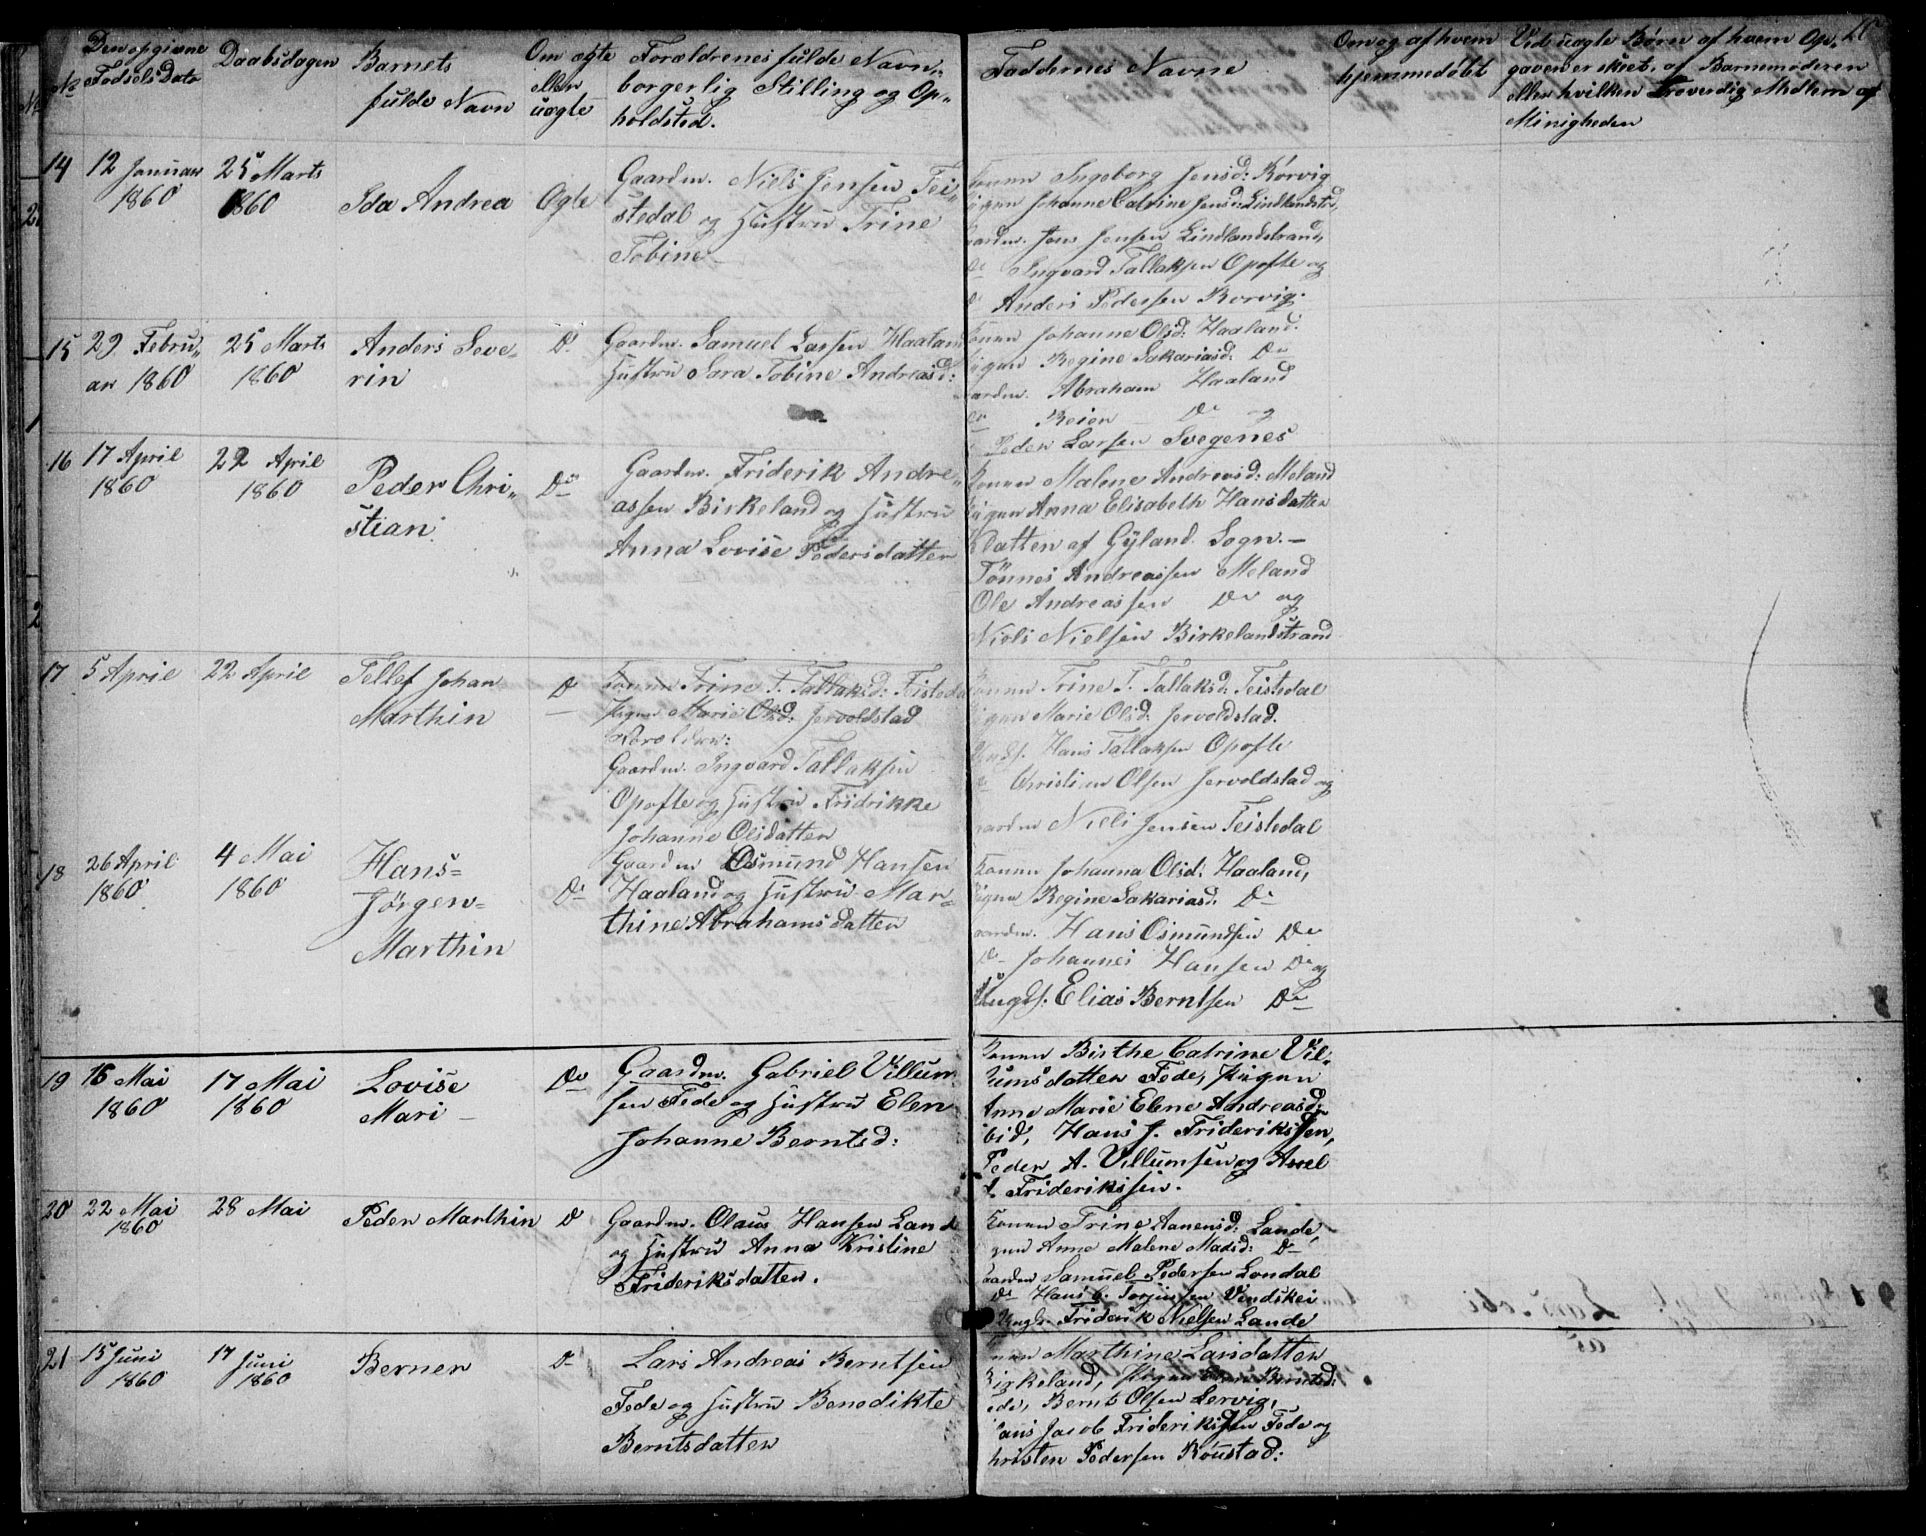 No
Den opgivne
Fødsels Dato
Daabsdagen
Barnets
fulde Navn
Om ægte
eller
uægte
Forældrenes fulde Navn,
borgerlig Stilling og Op-
holdsted.
Faddernes Navne
Om og af hvem
hjemmedøbt
Ved uægte Børn af hvem Op-
gaven er skeet, af Barnemoderen
eller hvilken troværdig Medlem af
Menigheden
14
12 Januar
1860
25 Marts
1860
Ida Andrea
Ægte
Gaardm. Niels Jensen Tei-
stedal og Hustru Trine
Tobine
Konen Ingeborg Jensd: Rørvig
Pigen Johanne Catrine Jensd: Lindlandstr,
Gaardm. Jens Jensen Lindlandstrand,
Do Ingvard Tallaksen Opofte og
Do Anders Pedersen Rørvig.
15
29 Febru-
ar 1860
25 Marts
1860
Anders Seve-
rin
Do
Gaardm. Samuel Larsen Haaland
Hustru Sara Tobine Andreasd:
Konen Johanne Olsd: Haaland.
Pigen Regine Sakariasd: Do
Gaardm. Abraham Haaland
Do Reier Do og
Peder Larsen Svegenes
16
17 April
1860
22 April
1860
Peder Chri-
stian
Do
Gaardm. Friderik Andre-
assen Birkeland og Hustru
Anna Lovise Pedersdatter
Konen Malene Andreasd: Meland
Pigen Anna Elisabeth Hansdatter
datter af Gyland Sogn. —
Tönnes Andreassen Meland
Ole Andreassen Do og
Niels Nielsen Birkelandstrand
17
5 April
22 April
Tellef Johan
Marthin
Do
Konen Trine T. Tallaksd: Teistedal
Pigen Marie Olsd: Jervoldstad
Forældre:
Gaardm. Ingvard Tallaksen
Opofte og Hustru Fridrikke
Johanne Olsdatter
Konen Trine T. Tallaksd: Teistedal
Pigen Marie Olsd: Jervoldstad.
Ungk. Hans Tallaksen Opofte
Do Christian Olsen Jervoldstad og
Gaardm Niels Jensen Teistedal
18
26 April
1860
4 Mai
1860
Hans=
Jörgen=
Marthin
Do
Gaardm Osmund Hansen
Haaland og Hustru Mar-
thine Abrahamsdatter
Konen Johanna Olsd: Haaland,
Pigen Regine Sakariasd: Do
Gaardm. Hans Osmundsen Do
Do Johannes Hansen Do og
Ungk. Elias Berntsen Do
19
16 Mai
1860
17 Mai
1860
Lovise
Mari —
Do
Gaardm. Gabriel Villum-
sen Fede og Hustru Elen
Johanne Berntsd:
Konen Birthe Catrine Vil-
lumsdatter Fede, Pigen
Anne Marie Elene Andreasd:
ibid, Hans J. Frideriksen,
Peder A. Villumsen og Axel
Frideriksen.
20
22 Mai
1860
28 Mai
Peder Marthin
Do
Gaardm. Olaus Hansen Lande
og Hustru Anna Kristine
Frideriksdatter.
Konen Trine Aanensd: Lande,
Pigen Anne Malene Madsd: Do
Gaardm Samuel Pedersen Londal
Do Hans C. Torjussen Vindskei
Ungk. Friderik Nielsen Lande
21
15 Juni
1860
17 Juni
1860
Berner
Do
Lars Andreas Berntsen
Fede og Hustru Benedikte
Berntsdatter
Konen Marthine Larsdatter
Birkeland, Pigen Berntsd:
Fede, Bernt Olsen Lervig,
Hans Jacob Frideriksen Fede og
Christen Pedersen Röiistad: